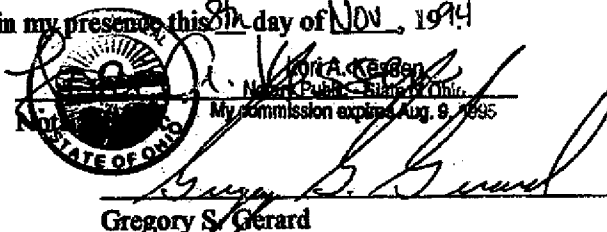 in my presence this 8th day of Nov, 1994
Lori A. Kessen
Notary Public - State of Ohio
My commission expires Aug. 9, 1995
Not
STATE OF OHIO
Gregory S. Gerard
Gregory S. Gerard